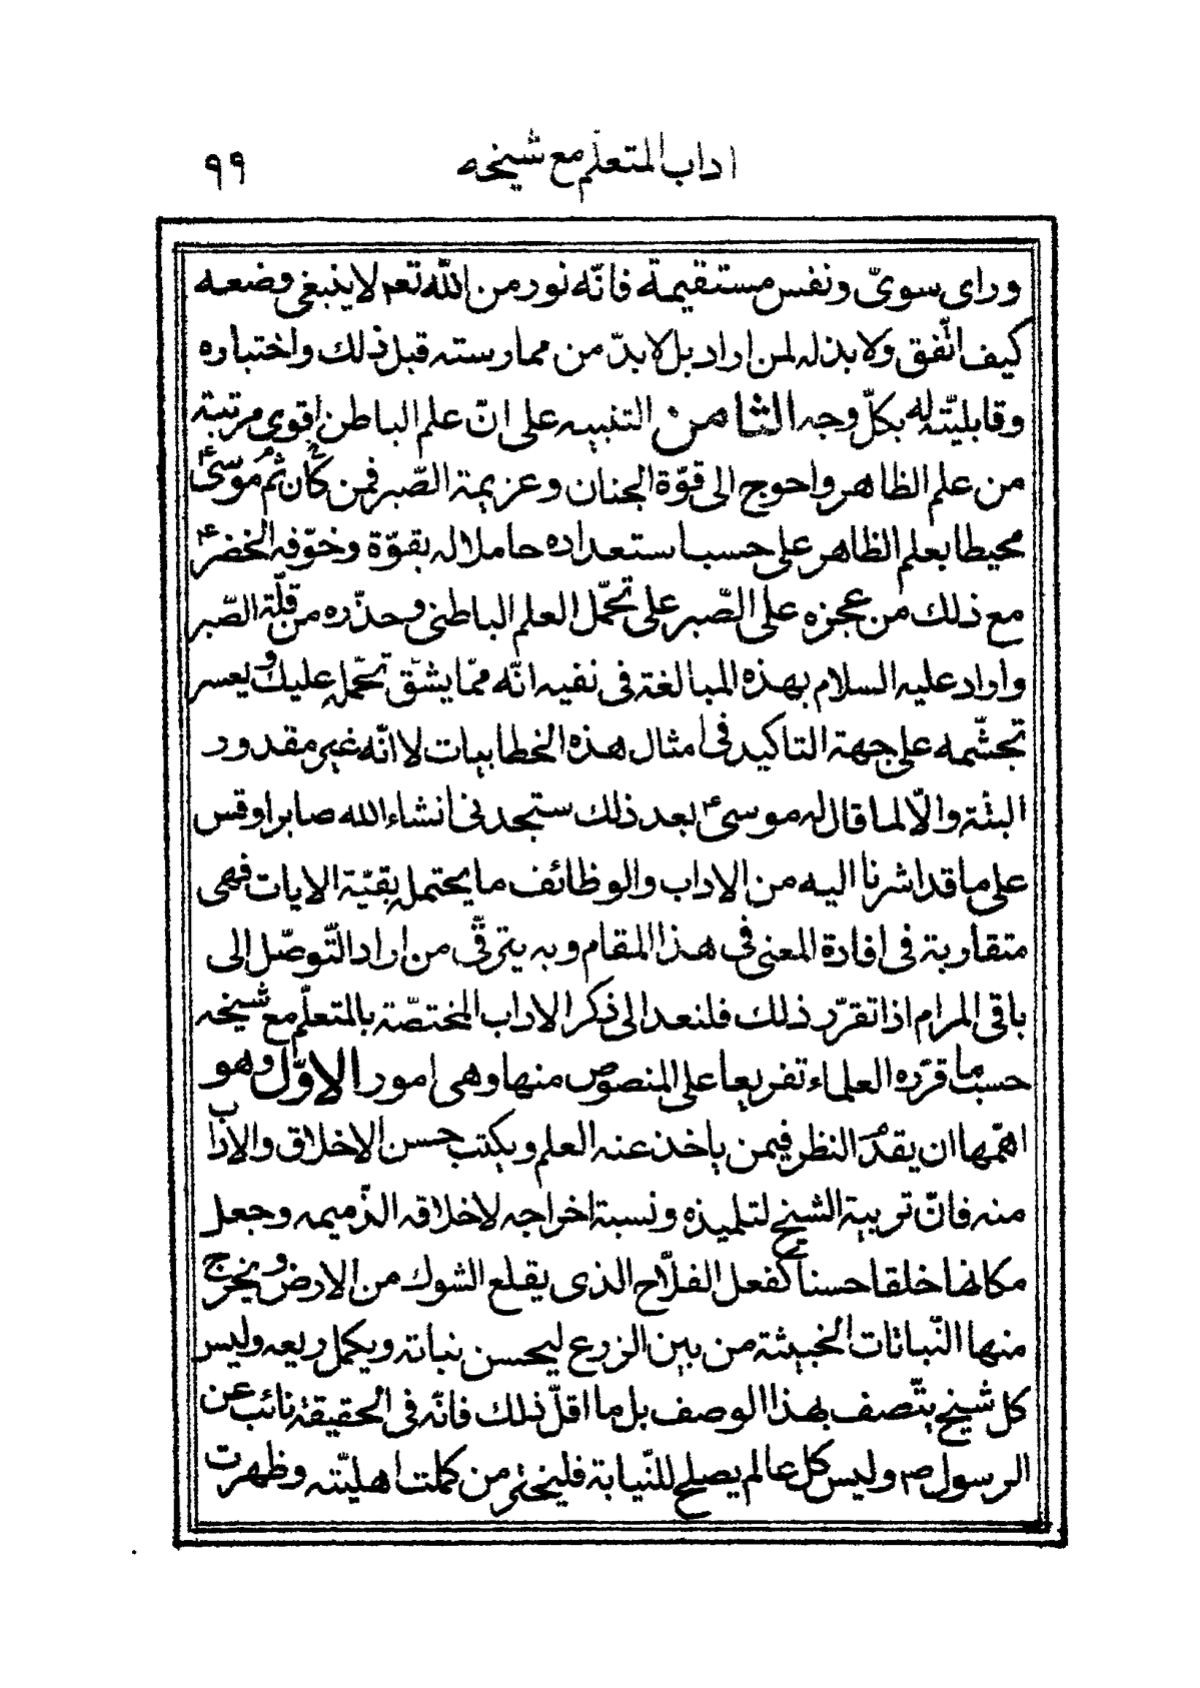 اداب المتعلّم مع شيخه ٩٩
وراى سوىّ ونفس مستقيمة فانّه نور من اللّه تعم لا ينبغى وضعه
كيف اتّفق ولا بذله لمن اراد بل لا بدّ من ممارسته قبل ذلك واختباره
وقابليّته له بكلّ وجه الثامن التنبيه على انّ علم الباطن اقوى مرتبة
من علم الظاهر واحوج الى قوّة الجنان وعزيمة الصّبر فمن ثمّ كان موسىٰ ع
محيطا بعلم الظاهر على حسب استعداده حاملا له بقوّة وخوّفه الخضر ع
مع ذلك من عجزه على الصّبر على تحمّل العلم الباطنى وحذّره من قلّة الصّبر
واراد عليه السلام بهذه المبالغة فى نفيه انّه ممّا يشقّ تحمّله عليك ويعسر
تجشّمه على جهة التاكيد فى امثال هذه الخطابيات لا انّه غير مقدور
البتّة والّا لما قال له موسى ع بعد ذلك ستجدنى انشاء الله صابرا وقس
على ما قد اشرنا اليه من الاداب والوظائف ما يحتمله بقيّة الايات فهى
متقاربة فى افادة المعنى فى هذا المقام وبه يترقّى من اراد التّوصّل الى
باقى المرام اذا تقرّر ذلك فلنعد الى ذكر الاداب المختصّة بالمتعلّم مع شيخه
حسب ما قرّره العلماء تفريعا على المنصوص منها وهى امور الاوّل وهو
اهمّها ان يقدّم النظر فيمن ياخذ عنه العلم ويكتسب حسن الاخلاق والاداب
منه فانّ تربية الشيخ لتلميذه ونسبة اخراجه لاخلاقه الذّميمه وجعل
مكانها خلقا حسنا كفعل الفلّاح الذى يقلع الشوك من الارض ويخرج
منها النّباتات الخبيثة من بين الزرع ليحسن نباته ويكمل ريعه وليس
كل شيخ يتّصف بهذا الوصف بل ما اقلّ ذلك فانّه فى الحقيقة نائب عن
الرسول ص وليس كل عالم يصلح للنّيابة فليختر من كملت اهليّته وظهرت